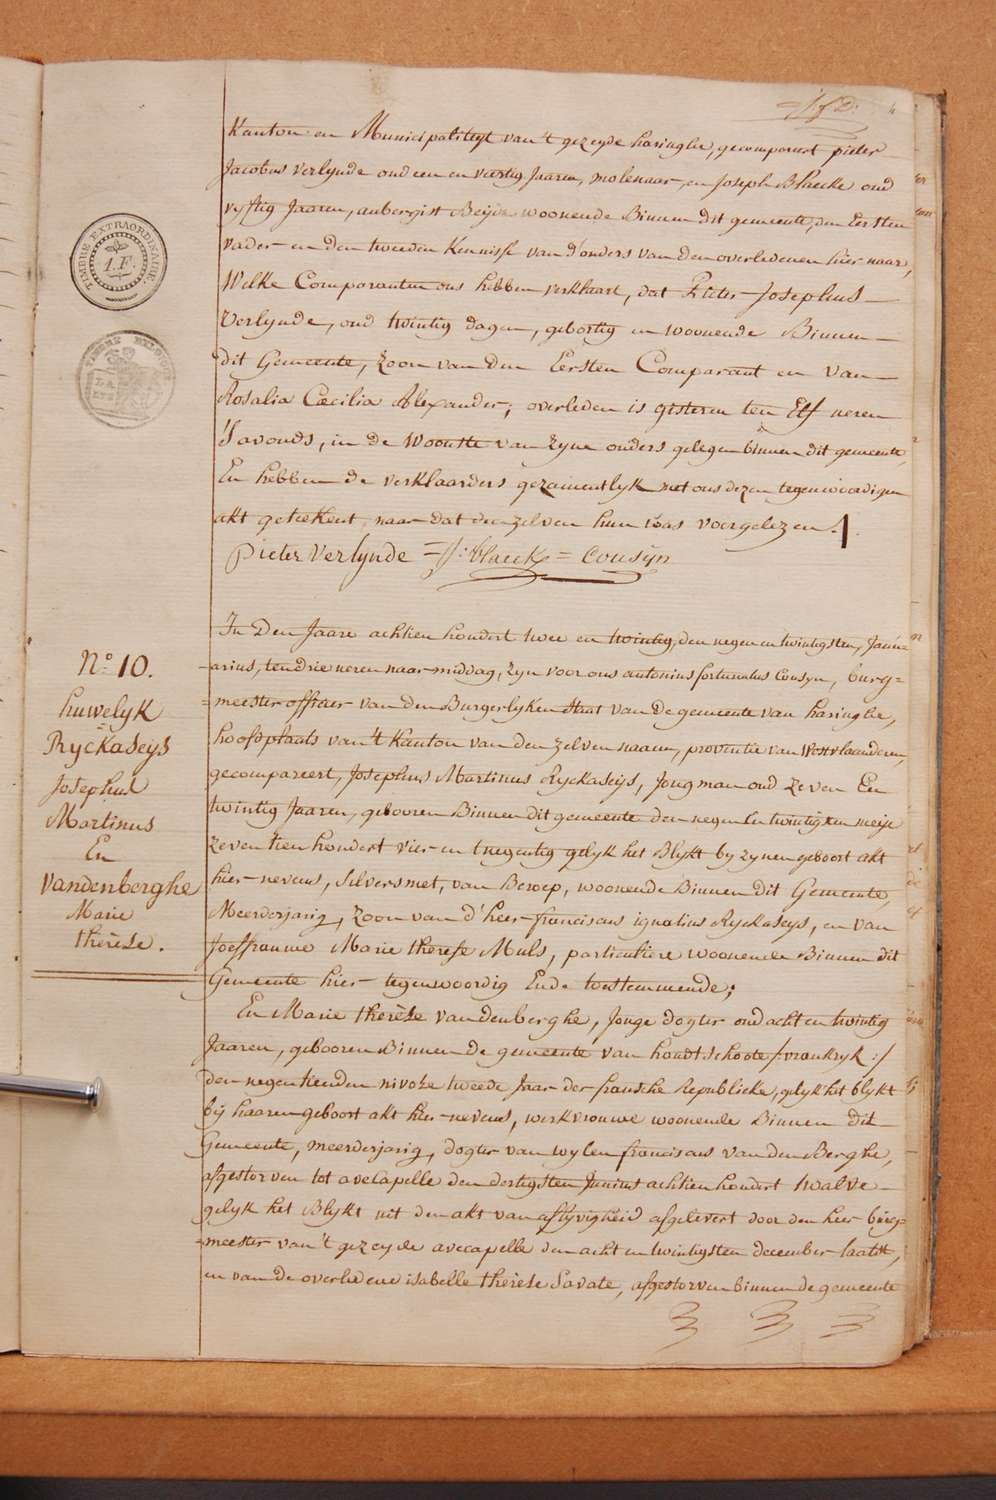 TIMBRE EXTRAORDINAIRE.
1.F.
Kanton en Municipaliteyt van 't gezeyde haringhe, gecompareert pieter
Jacobus Verlynde oud een en veertig Jaaren, molenaar, en Joseph Blaecke oud
vyftig Jaaren, aubergist Beijde woonende Binnen dit gemeente, den Eersten
vader en den tweeden Kennisse van d'ouders van den overledenen hier naar,
Welke Comparanten ons hebben verklaart, dat Pieter Josephus
Verlynde, oud twintig dagen, gebortig en woonende Binnen
dit Gemeente, Zoon van den Eersten Comparant en van
Rosalia Cæcilia Alexander; overleden is gisteren ten Elf ueren
's avonds, in de Woonste van Zyne ouders gelegen binnen dit gemeente,
En hebben de verklaarders gezamentlyk met ons dezen tegenwoordigen
akt geteekent, naar dat denzelven hun was voorgelezen.
Pieter Verlynde = J: blaecke = Cousyn
N.º 10.
huwelyk
Ryckaseys
Josephus
Martinus
En
Vandenberghe
Marie
thérèse.
In Den Jaare achtien hondert twee en twintig, den negen en twintigsten, Janu-
arius, ten drie ueren naar-middag, Zyn voor ons antonius fortunatus Cousyn, burg=
=meester officier van den Burgerlyken Staat van De gemeente van haringhe,
hoofdplaats van 't Kanton van den zelven naam, provintie van Westvlaanderen,
gecompareert, Josephus Martinus Ryckaseijs, Jongman oud Zeven En
twintig Jaaren, gebooren Binnen dit gemeente den negen En twintigsten meije
Zeventien hondert vier en tnegentig gelyk het Blykt by zynen geboort akt
hier-nevens, Silversmet, van Beroep, woonende Binnen dit Gemeente,
Meerderjarig, Zoon van d'heer franciscus ignatius Ryckaseys, en van
Joeffrauwe Marie therese Muls, particuliere woonende Binnen dit
Gemeente hier tegenwoordig Ende toestemmende;
En Marie thérèse vandenberghe, Jonge dogter oud acht en twintig
Jaaren, gebooren Binnen de gemeente van hondtschoote /:vrankryk:/
den negentienden nivose tweede Jaar der fransche Republieke, gelyk het blykt
bij haaren geboort akt hier-nevens, werkvrouwe woonende Binnen dit
Gemeente, meerderjarig, dogter van wylen franciscus van den Berghe,
afgestorven tot avecapelle den dertigsten Junius achtien hondert twalve
gelyk het Blykt uit den akt van aflyvigheid afgelevert door den heer burg=
=meester van 't gezeyde avecapelle den acht en twintigsten december laatst,
en van de overledene isabelle thérèse Savate, afgestorven binnen de gemeente